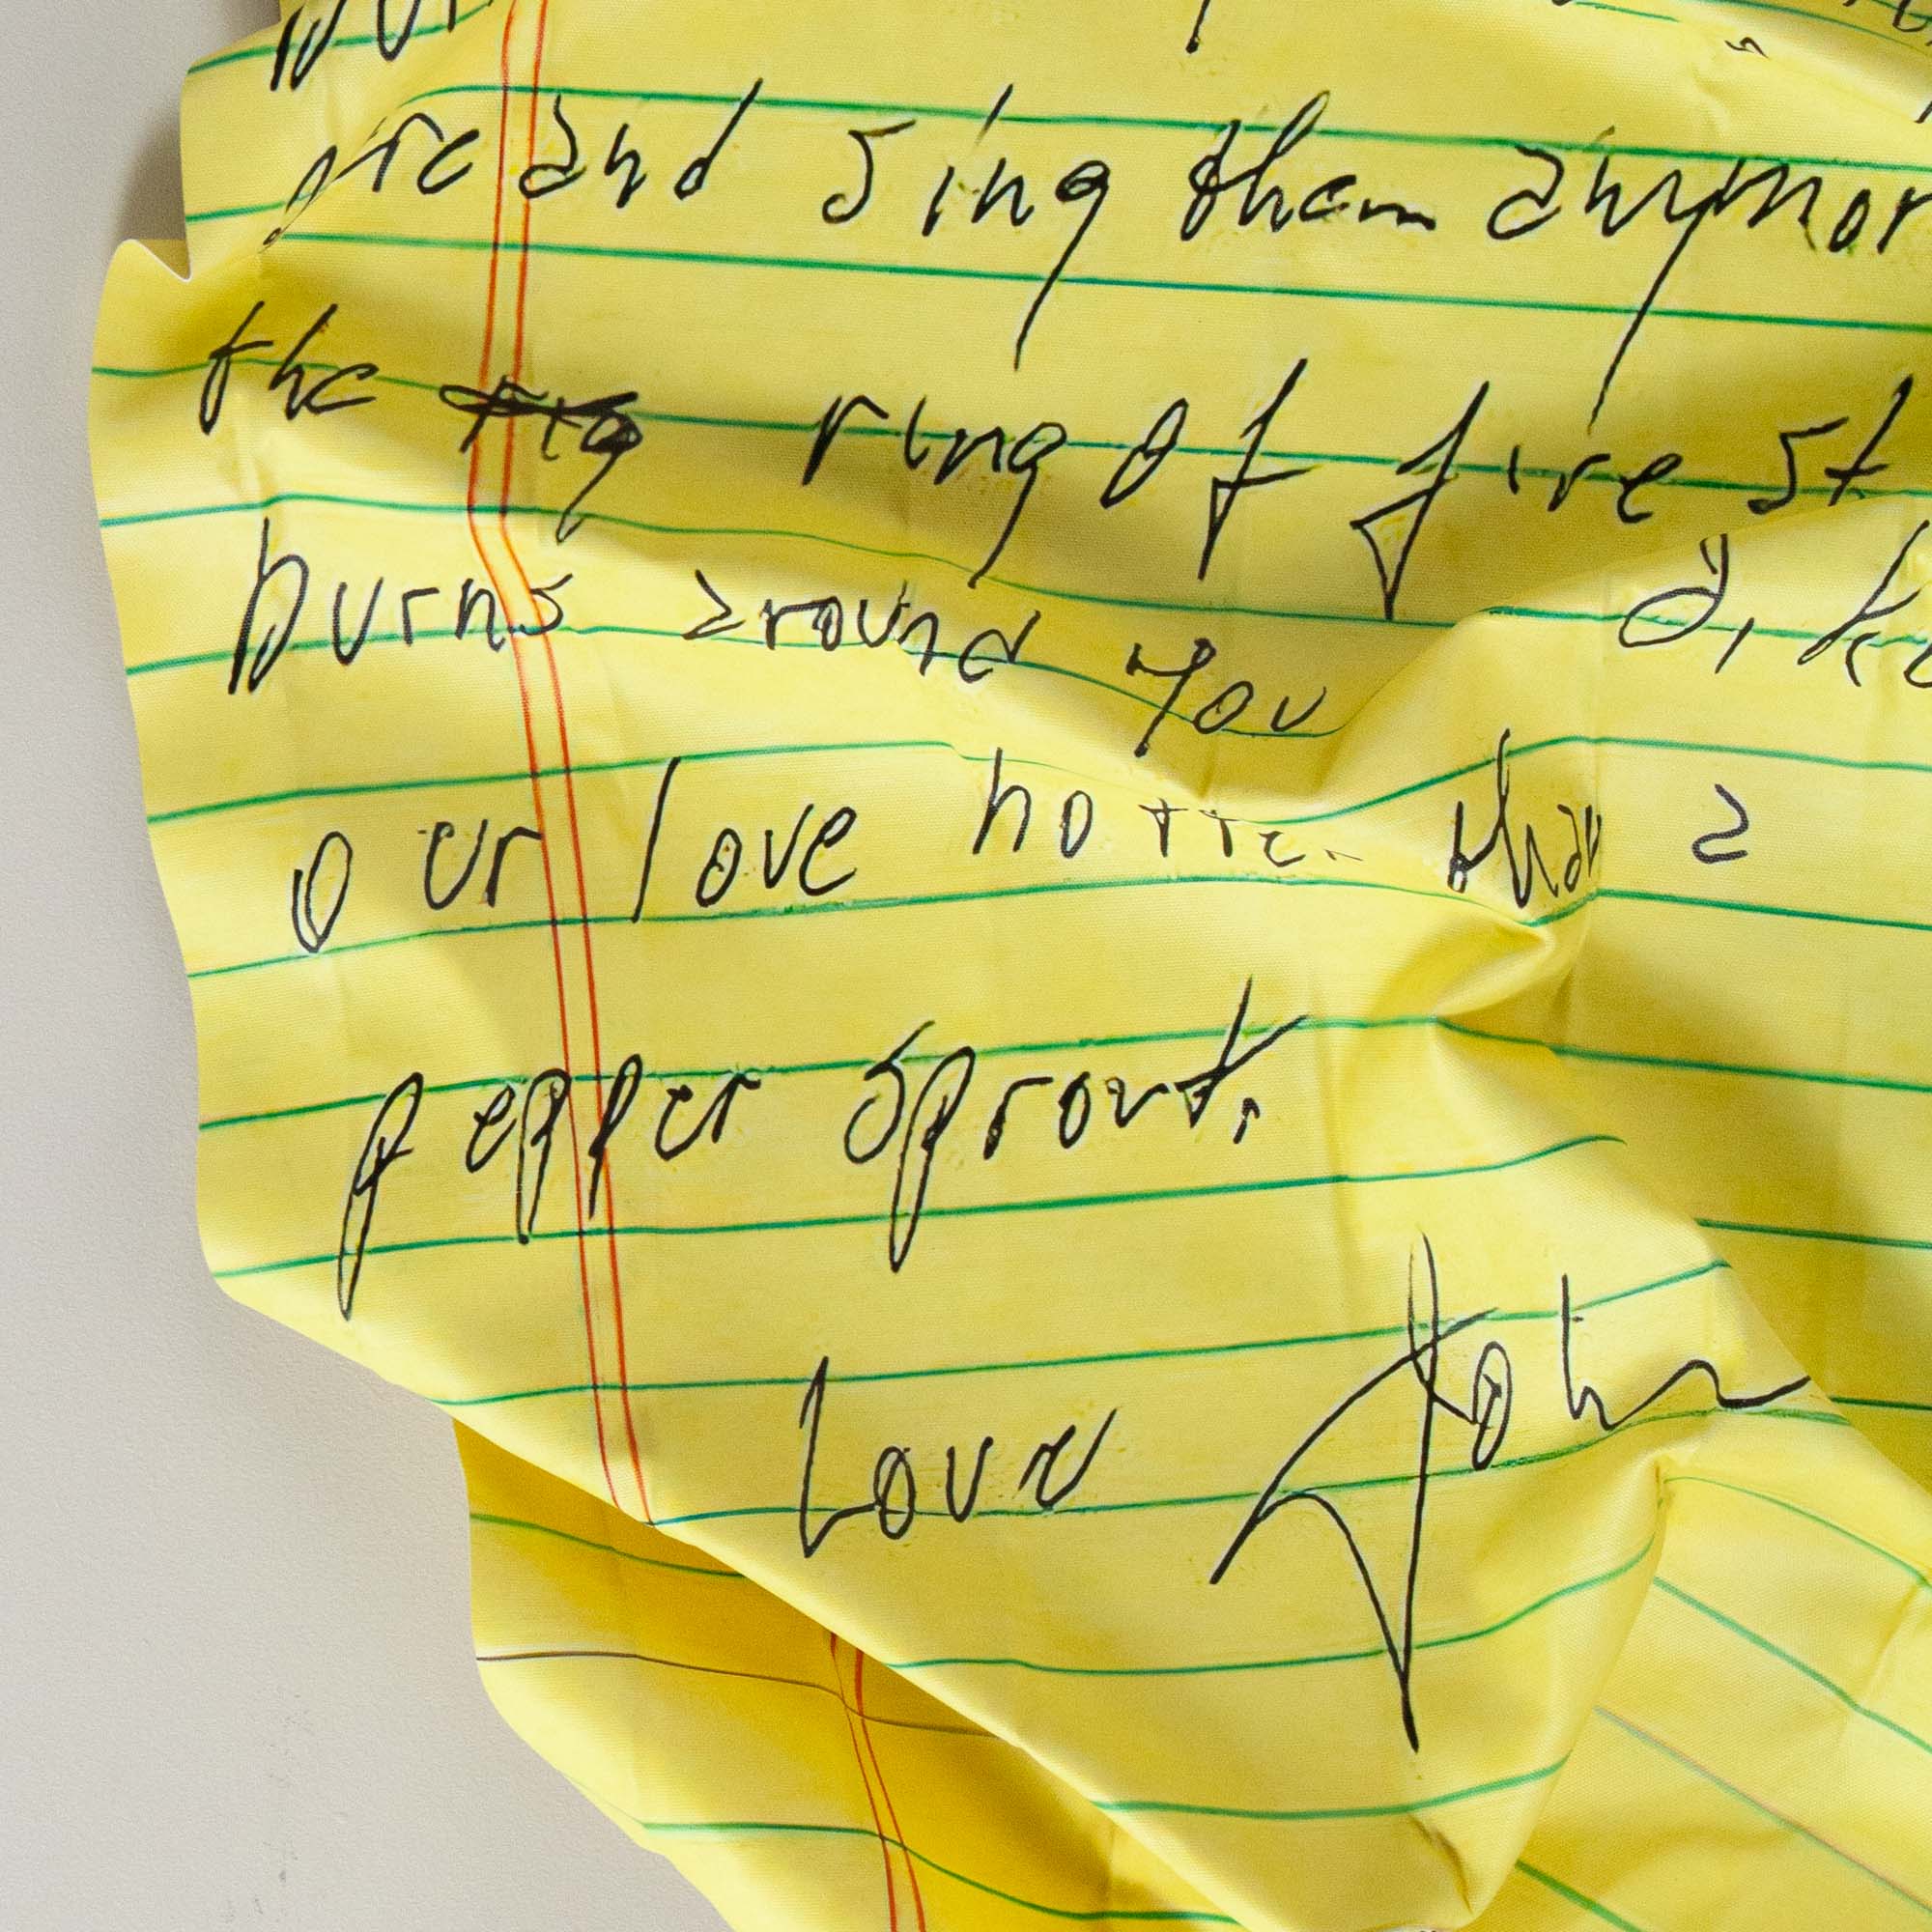 gre and sing them anymor
the ring of fire st
burns around you
our love hotter than a
pepper sprout.
Love John